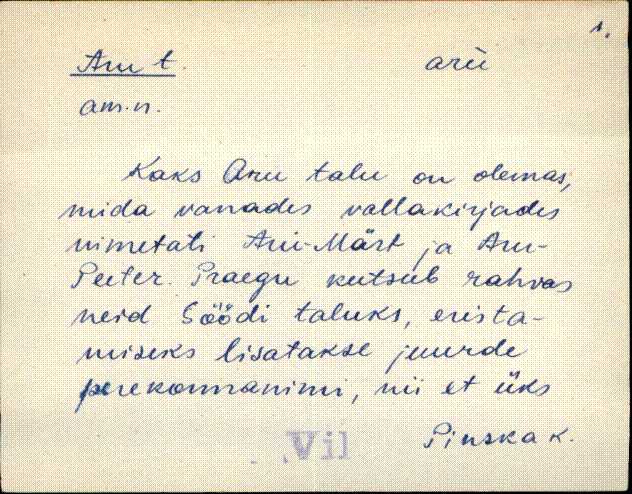 1.
Aru t. arü
am.n.
Kaks Aru talu on olemas,
mida vanades vallakirjades
nimetati Aru-Märt ja Aru-
Peeter. Praegu kutsub rahvas
neid Söödi taluks, erista-
miseks lisatakse juurde
perekonnanimi, nii et üks
Vil Pinska k.